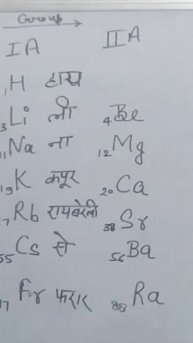 Group →
IA IIA
1H हाय
3Li ली 4Be
11Na ना 12Mg
19K कपूर 20Ca
7Rb रायबरेली 38Sr
55Cs से 56Ba
7 Fr फरार 88Ra